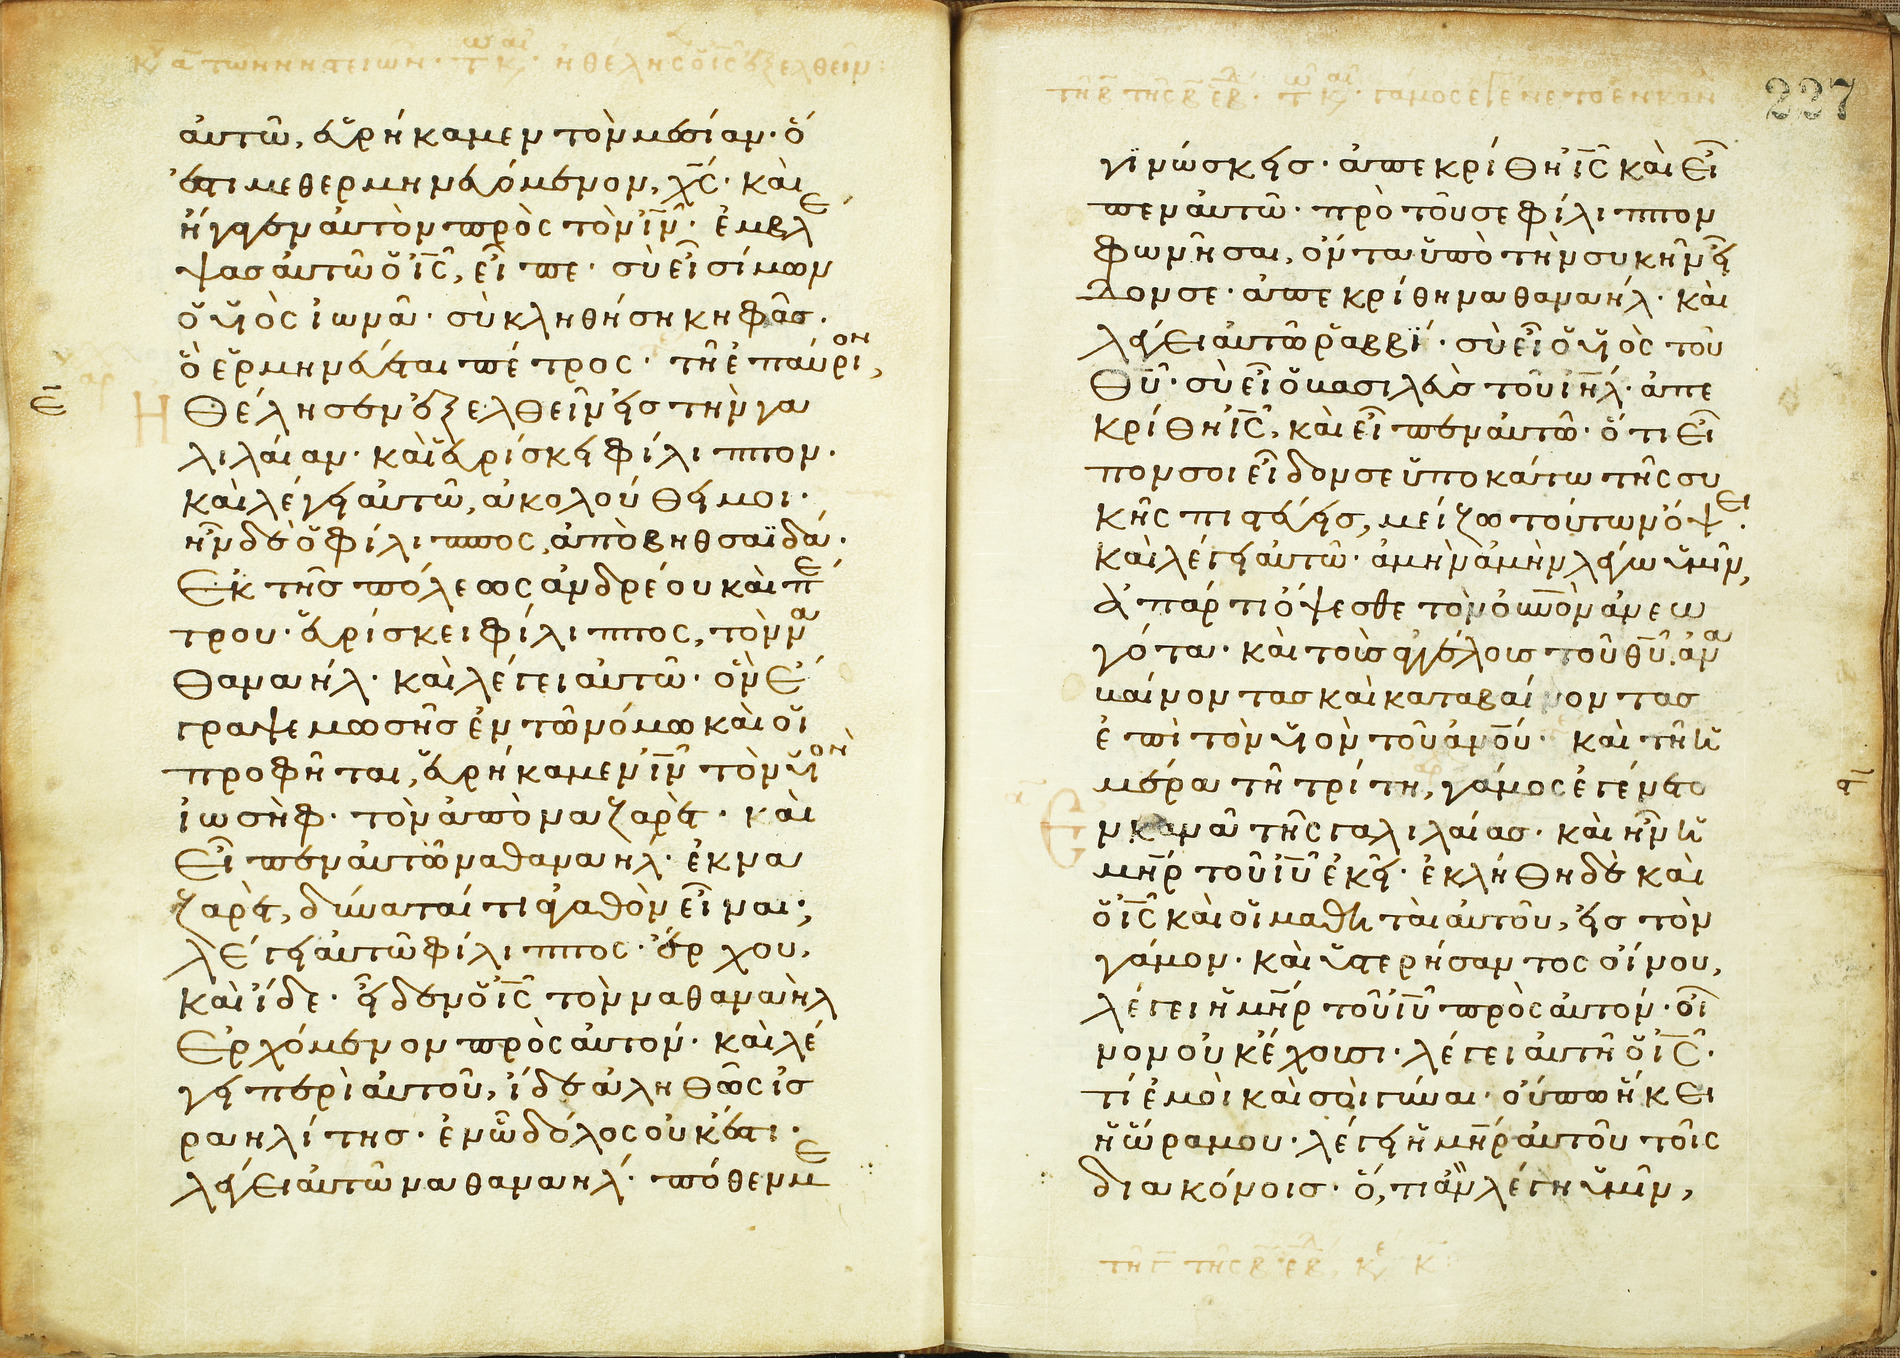 κυ α τῶν νηστειῶν · ἠθέλησεν ὁ ις ἐξελθεῖν
αὐτῶ, εὑρήκαμεν τὸν μεσίαν· ὅ
ἐστι μεθερμηνευόμενον, χς· καὶ
ἤγαγεν αὐτὸν πρὸς τὸν ιν· ἐμβλέ
ψας αὐτῶ ὁ ις, εἶπε· σὺ εἶ σίμων
ὁ υἱὸς ἰωνᾶ· σὺ κληθήση κηφᾶς·
ὃ ἑρμηνεύεται πέτρος· τῆ ἐπαύριον,
ε Ἠθέλησεν ἐξελθεῖν εἰς τὴν γα
λιλαίαν· καὶ εὑρίσκει φίλιππον·
καὶ λέγει αὐτῶ, ἀκολούθει μοι·
ἦν δὲ ὁ φίλιππος, ἀπὸ βηθσαϊδά·
ἐκ τῆς πόλεως ἀνδρέου καὶ πέ
τρου· εὑρίσκει φίλιππος, τὸν να
θαναήλ· καὶ λέγει αὐτῶ· ὃν ἔ
γραψε μωσῆς ἐν τῶ νόμω καὶ οἱ
προφῆται, εὑρήκαμεν ιν τὸν υἱὸν
ἰωσὴφ· τὸν ἀπὸ ναζαρὲτ· καὶ
εἶπεν αὐτῶ ναθαναήλ· ἐκ να
ζαρὲτ, δύναταί τι ἀγαθὸν εἶναι;
λέγει αὐτῶ φίλιππος· ἔρχου,
καὶ ἴδε· εἶδεν ὁ ις τὸν ναθαναὴλ
ἐρχόμενον πρὸς αὐτον· καὶ λέ
γει περὶ αὐτοῦ, ἴδε ἀληθῶς ἰσ
ραηλίτης· ἐν ὧ δόλος οὐκ ἔστι·
λέγει αὐτῶ ναθαναήλ· πόθεν με
227
γάμος ἐγένετο ἐν καν
γινώσκεις· ἀπεκρίθη ις καὶ εἶ
πεν αὐτῶ· πρὸ τοῦ σε φίλιππον
φωνῆσαι, ὄντα ὑπὸ τὴν συκῆν εἶ
δον σε· ἀπεκρίθη ναθαναήλ· καὶ
λέγει αὐτῶ ῥαββϊ· σὺ εἶ ὁ υἱὸς τοῦ
θυ· σὺ εἶ ὁ βασιλεὺς τοῦ ιηλ· ἀπε
κρίθη ις, καὶ εἶπεν αὐτῶ· ὅτι εἶ
πον σοι εἶδον σε ὑποκάτω τῆς συ
κῆς πιστεύεις, μείζω τούτων ὄψει·
καὶ λέγει αὐτῶ· ἀμὴν ἀμὴν λέγω ὑμῖν,
ἀπάρτι ὄψεσθε τὸν οὐνον ἀνεω
γότα· καὶ τοὺς ἀγγέλους τοῦ θυ ἀνα
βαίνοντας καὶ καταβαίνοντας
ἐπὶ τὸν υἱὸν τοῦ ἀνου· καὶ τῆ ἡ
μέρα τῆ τρίτη, γάμος ἐγένετο
ἐν κανᾶ τῆς γαλιλαίας· καὶ ἦν ἡ
μηρ τοῦ ιυ ἐκεῖ· ἐκλήθη δὲ καὶ
ὁ ις καὶ οἱ μαθηταὶ αὐτοῦ, εἰς τὸν
γάμον· καὶ ὑστερήσαντος οἴνου,
λέγει ἡ μηρ τοῦ ιυ πρὸς αὐτον· οἶ
νον οὐκ ἔχουσι· λέγει αὐτῆ ὁ ις·
τί ἐμοὶ καὶ σοὶ γύναι· οὔπω ἥκει
ἡ ὥρα μου· λέγει ἡ μηρ αὐτοῦ τοῖς
διακόνοις· ὅ,τι ἂν λέγη ὑμῖν,